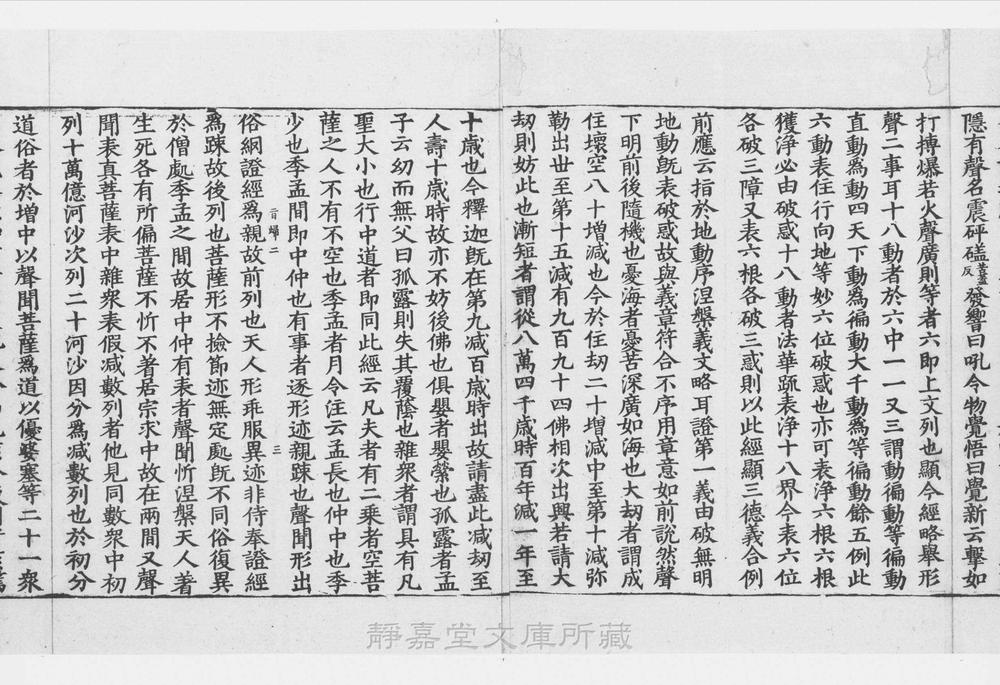 隱有聲名震砰磕苦蓋反發響曰吼令物覺悟曰覺新云擊如
打搏爆若火聲廣則等者六即上文列也顯今經略舉形
聲二事耳十八動者於六中一一又三謂動徧動等徧動
直動為動四天下動為徧動大千動為等徧動餘五例此
六動表住行向地等妙六位破惑也亦可表淨六根六根
獲淨必由破惑十八動者法華䟽表淨十八界今表六位
各破三障又表六根各破三惑則以此經顯三德義合例
前應云指於地動序涅槃義文略耳證第一義由破無明
地動旣表破惑故與義章符合不序用章意如前說然聲
下明前後隨機也憂海者憂苦深廣如海也大刼者謂成
住壞空八十增減也今於住刼二十增減中至第十減弥
勒出世至第十五減有九百九十四佛相次出興若請大
刼則妨此也漸短者謂從八萬四千歲時百年減一年至
十歲也今釋迦旣在第九减百歲時出故請盡此减刼至
人壽十歲時故亦不妨後佛也俱嬰者嬰縈也孤露者孟
子云幼而無父曰孤露則失其覆蔭也雜衆者謂具有凡
聖大小也行中道者即同此經云凡夫者有二乘者空菩
薩之人不有不空也季孟者月令注云孟長也仲中也季
少也季孟間即中仲也有事者逐形迹親踈也聲聞形出
俗網證經為親故前列也天人形乖服異迹非侍奉證經
為踈故後列也菩薩形不撿節迹無定處旣不同俗復異
於僧處季孟之間故居中仲有表者聲聞忻涅槃天人著
生死各有所偏菩薩不忻不着居宗求中故在兩間又聲
聞表真菩薩表中雜衆表假减數列者他見同數衆中初
列十萬億河沙次列二十河沙因分為减數列也於初分
道俗者於增中以聲聞菩薩為道以優婆塞等二十一衆
靜嘉堂文庫所藏